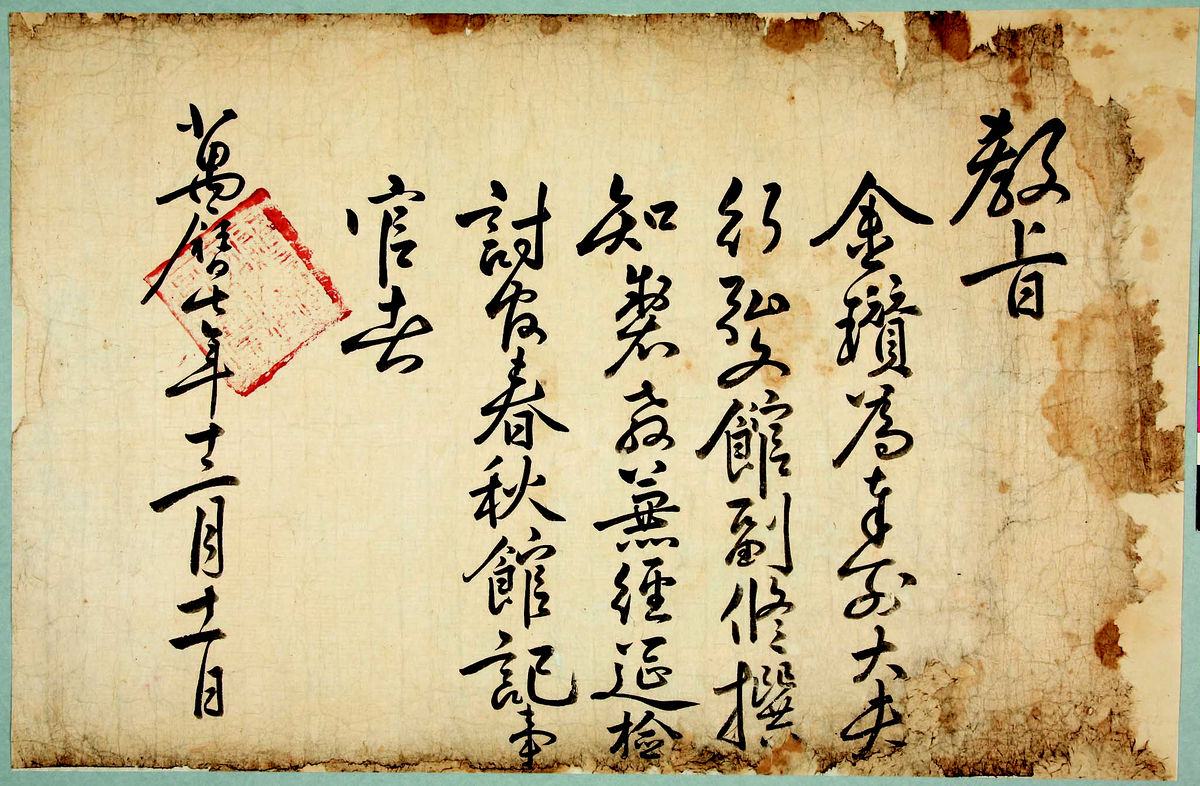 教旨
金瓚為奉列大夫
行弘文館副修撰
知製教兼經筵檢
討官春秋館記事
官者
萬曆七年十二月十一日